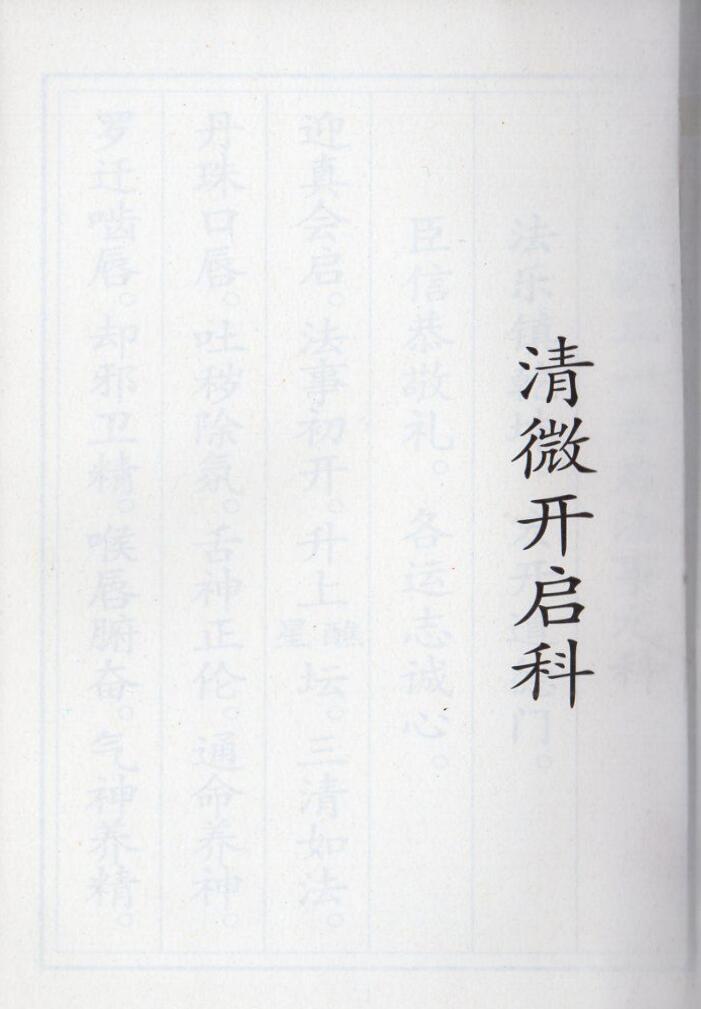 清微开启科
臣信恭敬礼。各运志诚心。
迎真会启。法事初开。升上星醮坛。三清如法。
丹珠口唇。吐秽除氛。舌神正伦。通命养神。
罗迁啮唇。却邪卫精。喉唇腑奋。气神养精。